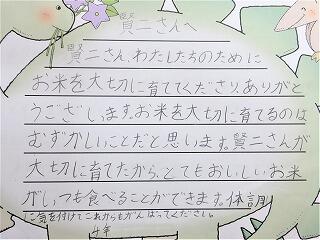 賢二さんへ
賢二さん、わたしたちのために
お米を大切に育ててくださり、ありがと
うございます。お米を大切に育てるのは
むずかしいことだと思います。賢二さんが
大切に育てたから、とてもおいしいお米
がいつも食べることができます。体調
に気を付けてこれからもがんばってください。
4年